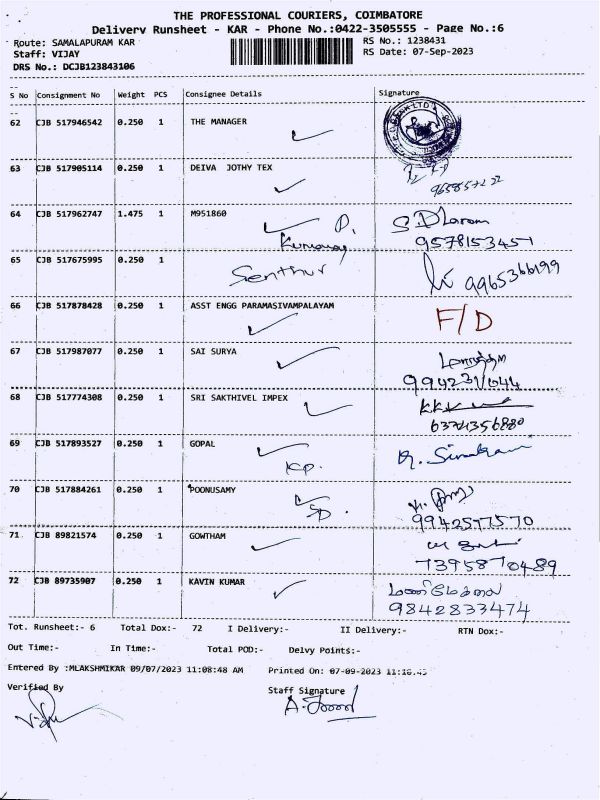 THE PROFESSIONAL COURIERS, COIMBATORE
Delivery Runsheet - KAR - Phone No.:0422-3505555 - Page No.:6
Route: SAMALAPURAM KAR RS No.: 1238431
Staff: VIJAY RS Date: 07-Sep-2023
DRS No.: DCJB123843106
S No Consignment No Weight PCS Consignee Details Signature
62 CJB 517946542 0.250 1 THE MANAGER
63 CJB 517905114 0.250 1 DEIVA JOTHY TEX
64 CJB 517962747 1.475 1 M951860
9578153451
65 CJB 517675995 0.250 1
Senthur 9965366199
66 CJB 517878428 0.250 1 ASST ENGG PARAMASIVAMPALAYAM F/D
67 CJB 517987077 0.250 1 SAI SURYA
68 CJB 517774308 0.250 1 SRI SAKTHIVEL IMPEX
6374356880
69 CJB 517893527 0.250 1 GOPAL
KP.
70 CJB 517884261 0.250 1 POONUSAMY
SD.
9942577570
71 CJB 89821574 0.250 1 GOWTHAM
7395870489
72 CJB 89735907 0.250 1 KAVIN KUMAR
9842833474
Tot. Runsheet:- 6 Total Dox:- 72 I Delivery:- II Delivery:- RTN Dox:-
Out Time:- In Time:- Total POD:- Delvy Points:-
Entered By :MLAKSHMIKAR 09/07/2023 11:08:48 AM Printed On: 07-09-2023
Verified By Staff Signature